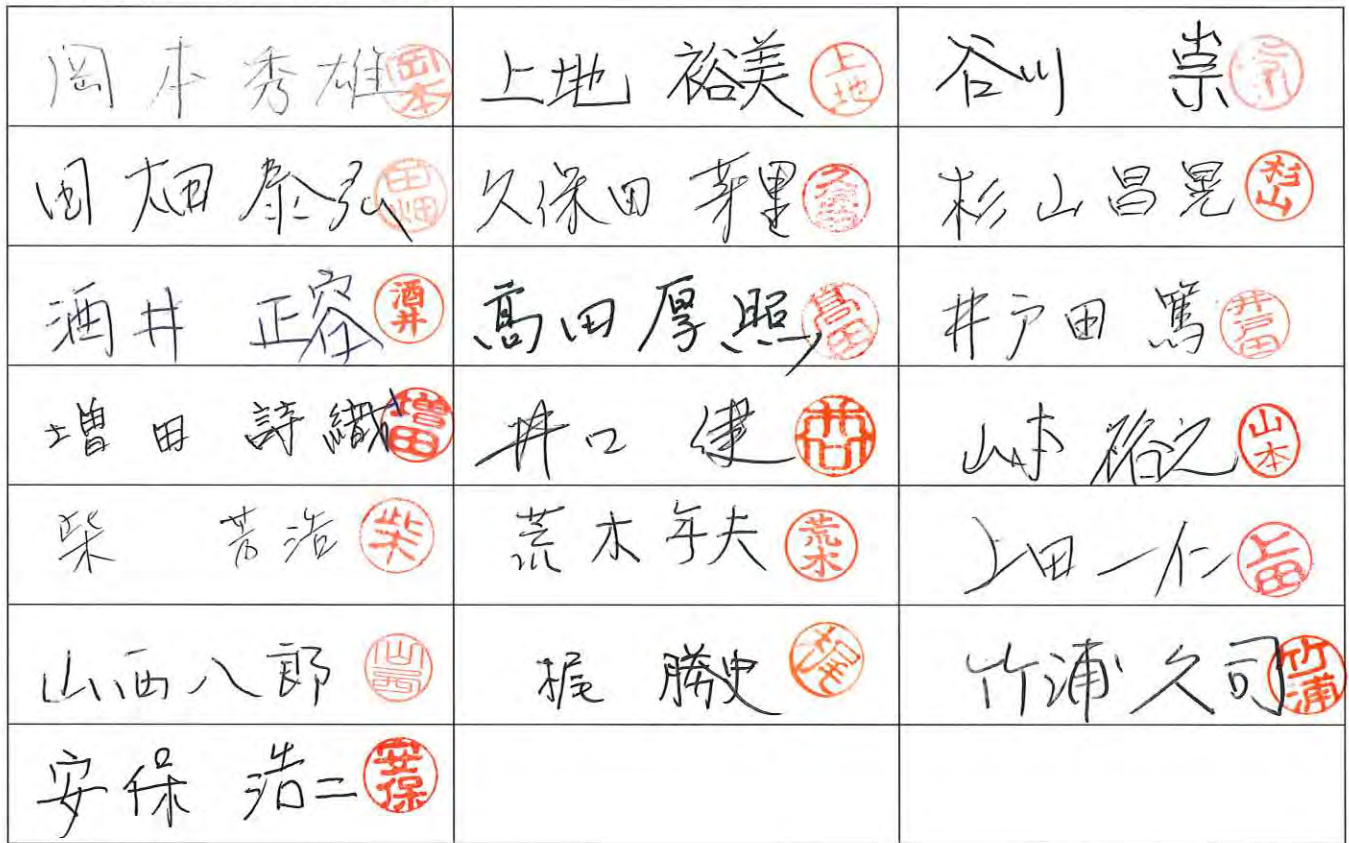 岡本秀雄 岡本 上地 裕美 上地 谷川 崇
田畑泰弘 田畑 久保田 芽里 久保田 杉山昌晃 杉山
酒井 正容 酒井 高田厚照 高田 井戸田 篤 井戸田
増田 詩織 増田 井口 健 井口 山本 裕之 山本
柴 芳浩 柴 荒木年夫 荒木 上田一仁 上田
山西八郎 山西 梶 勝史 梶 竹浦久司 竹浦
安保 浩二 安保